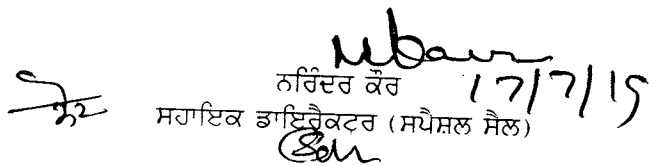 ਨਰਿੰਦਰ ਕੌਰ 17/7/19
ਸਹਾਇਕ ਡਾਇਰੈਕਟਰ (ਸਪੈਸ਼ਲ ਸੈਲ)